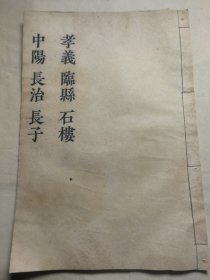 孝義 臨縣 石樓
中陽 長治 長子